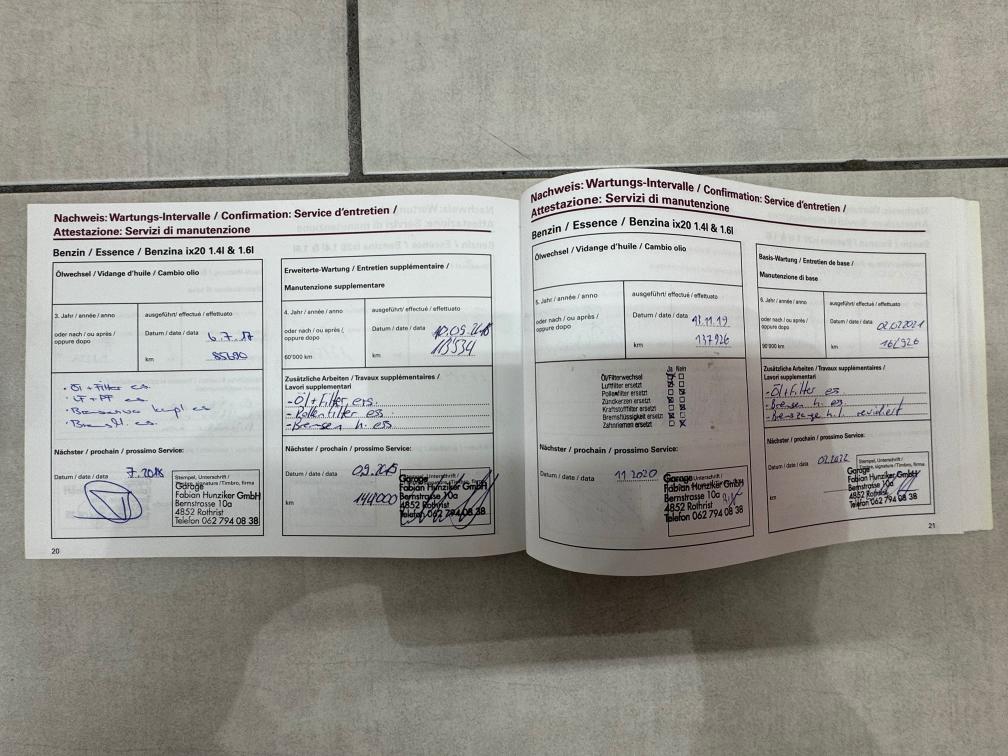 Nachweis: Wartungs-Intervalle / Confirmation: Service d'entretien /
Attestazione: Servizi di manutenzione
Benzin / Essence / Benzina ix20 1.4l & 1.6l
Ölwechsel / Vidange d'huile / Cambio olio
3. Jahr / année / anno
ausgeführt/ effectué / effettuato
oder nach / ou après /
oppure dopo
Datum / date / data 6.7.17
km
• Öl + Filter es.
• LF + PF es.
Nächster / prochain / prossimo Service:
Datum / date / data 7.2018
Stempel, Unterschrift /
Garage
Fabian Hunziker GmbH
Bernstrasse 10a
4852 Rothrist
Telefon 062 794 08 38
20
Erweiterte-Wartung / Entretien supplémentaire /
Manutenzione supplementare
4. Jahr / année / anno
ausgeführt/ effectué / effettuato
oder nach / ou après /
oppure dopo
Datum / date / data
60'000 km
km
Zusätzliche Arbeiten / Travaux supplémentaires /
Lavori supplementari
- Öl + Filter ers.
- Pollenfilter ess.
- Bremsen h. ess
Nächster / prochain / prossimo Service:
Datum / date / data
km
Stempel, Unterschrift /
Garage
Fabian Hunziker GmbH
Bernstrasse 10a
4852 Rothrist
Telefon 062 794 08 38
Nachweis: Wartungs-Intervalle / Confirmation: Service d'entretien /
Attestazione: Servizi di manutenzione
Benzin / Essence / Benzina ix20 1.4l & 1.6l
Ölwechsel / Vidange d'huile / Cambio olio
5. Jahr / année / anno
ausgeführt/ effectué / effettuato
oder nach / ou après /
oppure dopo
Datum / date / data
km 137926
Ja Nein
Öl/Filterwechsel
Luftfilter ersetzt
Pollenfilter ersetzt
Zündkerzen ersetzt
Kraftstofffilter ersetzt
Bremsflüssigkeit ersetzt
Zahnriemen ersetzt
Nächster / prochain / prossimo Service:
Datum / date / data 11.2020
Garage
Fabian Hunziker GmbH
Bernstrasse 10a
4852 Rothrist
Telefon 062 794 08 38
Basis-Wartung / Entretien de base /
Manutenzione di base
6. Jahr / année / anno
ausgeführt/ effectué / effettuato
oder nach / ou après /
oppure dopo
Datum / date / data 02.02.2021
90'000 km
km
Zusätzliche Arbeiten / Travaux supplémentaires /
Lavori supplementari
- Öl + Filter ess
- Bremsen h. ess
- Bremszange h.l. revidiert
Nächster / prochain / prossimo Service:
Datum / date / data 02.2022
km
Stempel, Unterschrift /
Timbre, signature /Timbro, firma
Garage
Fabian Hunziker GmbH
Bernstrasse 10a
4852 Rothrist
Telefon 062 794 08 38
21